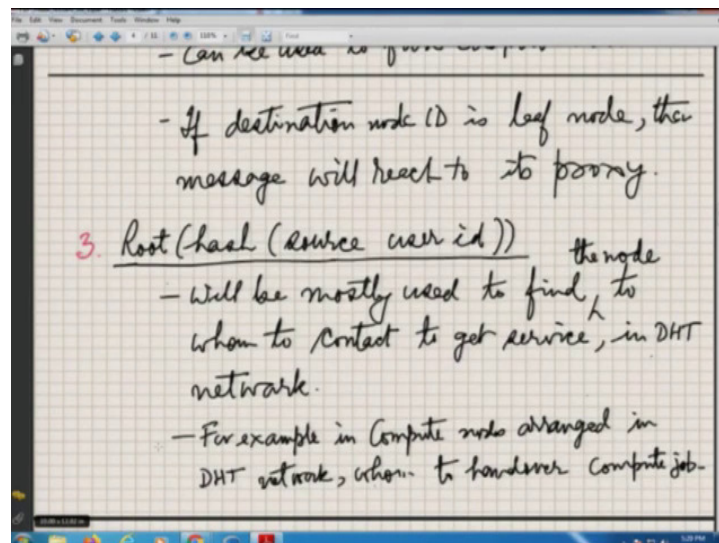 File Edit View Document Tools Window Help
4 / 11 110% Find
- Can be used to
- If destination node ID is leaf node, then
message will reach to its proxy.
3. Root (hash (source user id))
the node
- Will be mostly used to find, to
whom to contact to get service, in DHT
network.
- For example in Compute nodes arranged in
DHT network, whom to handover compute job-
5:29 PM